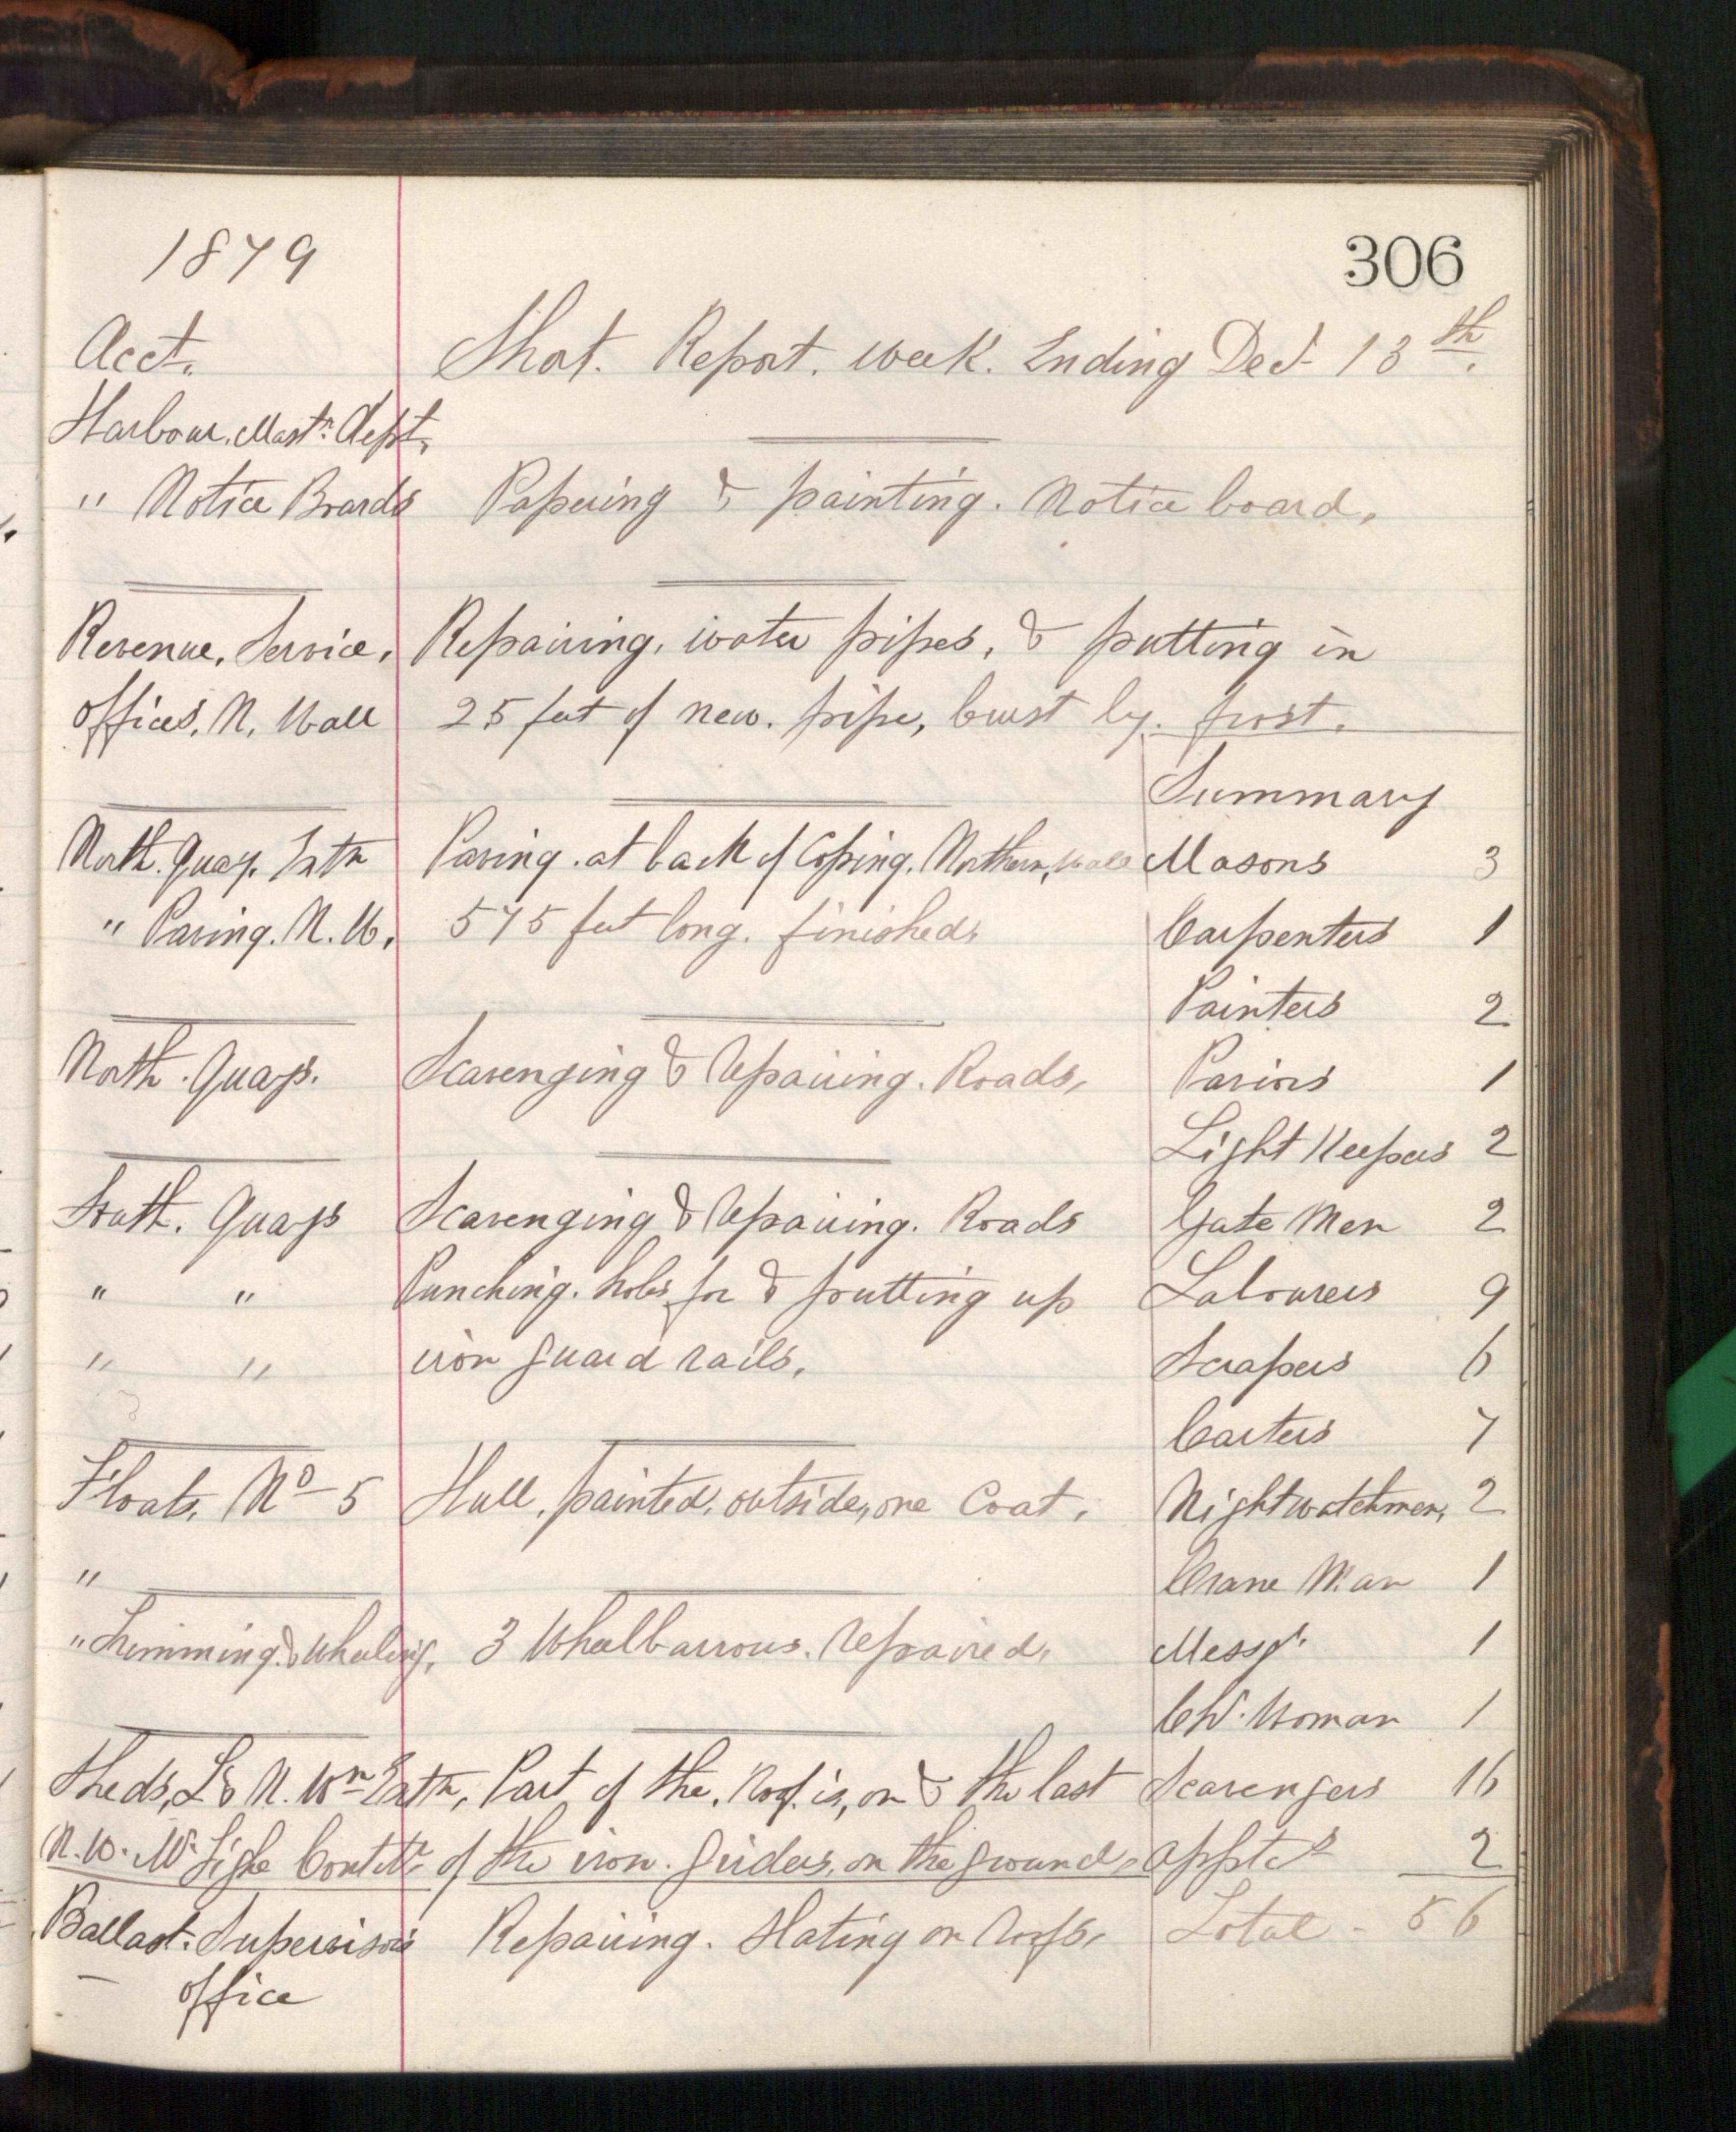 1879
306
Acct. Short. Report. week. Ending Dec.r 13th.
Harbour. Mastr. Dept.
" Notice Boards Papering & painting. Notice board.
Revenue, Service, Repairing, water pipes, & putting in
offices, N. Wall 25 feet of new. pipe, burst by. frost.
Summary
North. Quay. Extn Paving. at back of Coping. Northern, Wall Masons 3
" Paving. N. W. 575 feet long. finished. Carpenters 1
Painters 2
North. Quays. Scavenging & Repairing. Roads, Paviors 1
Light Keepers 2
South. Quays Scavenging & Repairing. Roads Gate Men 2
" " Punching. holes for & putting up Labourers 9
" " iron guard rails. Scrapers 6
Carters 7
Floats, No 5 Hull, painted, outside, one Coat. Nightwatchmen, 2
" Crane Man 1
" Trimming & Wheeling. 3 Wheelbarrows. Repaired. Messgr. 1
Ch.r Woman 1
Sheds, L & N. Wn Extn, Part of the. Roof. is, on & the last Scavengers 16
N. W. Contr. of the iron. girders, on the ground. apptes 2
Ballast. Supervisors Repairing. Slating on Roofs. Total - 56
office